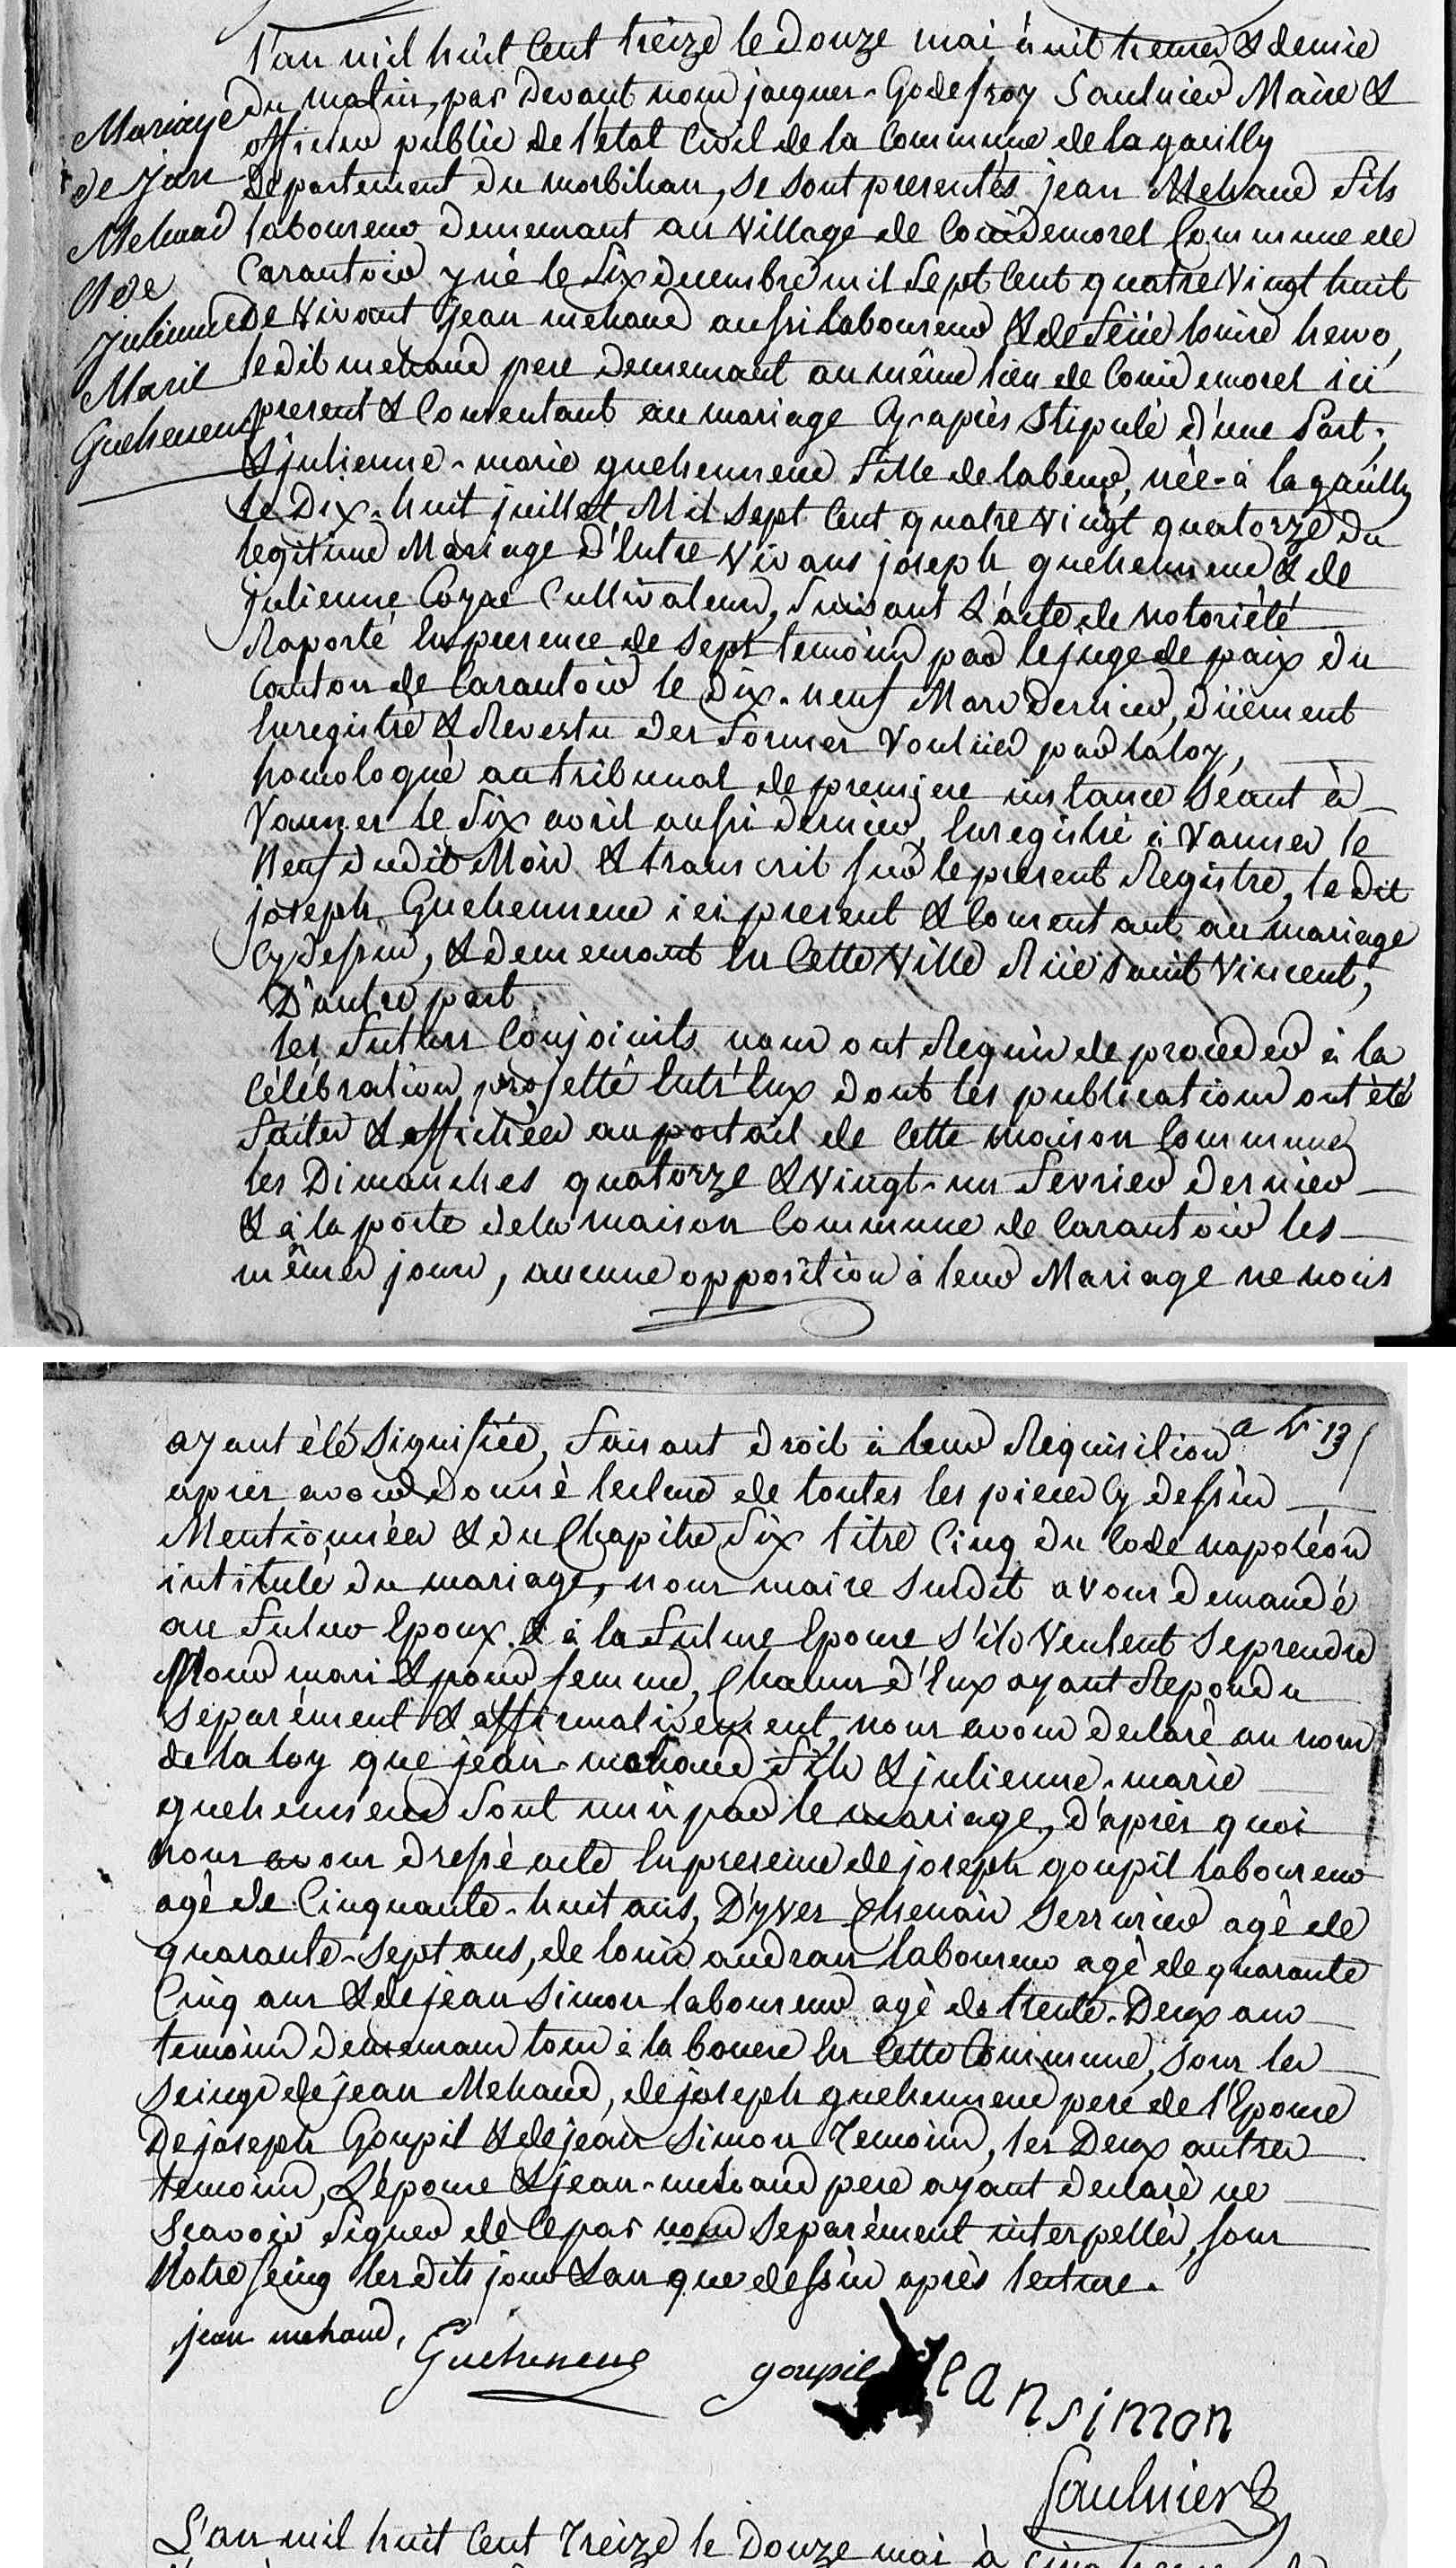 Mariage
de Jan
Mehaud
et de
julienne
Marie
Guehenneuc
l'an mil huit Cent treize le Douze mai à huit heures & demie
du matin, par devant nous jacques-Godefroy Saulnier Maire &
officier public de l'etat Civil de la Commune de la gacilly
Departement du morbihan, se sont presentés jean Mehaud fils
laboureur demeurant au village de Couëdemorel Commune de
Carantoir y né le Six decembre mil Sept Cent quatre Vingt huit
de Vivant jean mehaud aussi laboureur & de feüe louise hervo,
ledit mehaud pere demeurant au même lieu de Couedemorel ici
present & Consentant au mariage Cy-après Stipulé d'une Part;
& julienne-marie guehenneuc fille de labeur, née à la gacilly
le Dix-huit juillet Mil Sept Cent quatre vingt quatorze du
legitime Mariage d'Entre Vivans joseph guehenneuc & de
julienne Coyac Cultivateurs, Suivant L'acte de notoriété
Raporté En presence de Sept temoins par le juge de paix du
Canton de Carantoir le Dix-neuf Mars Dernier, düement
Enregistré & Revestu des formes Voulües par la loy,
homologué au tribunal de premiere instance Séant à
Vannes le Six avril aussi dernier, Enregistré à Vannes le
Neuf dudit Mois & transcrit sur le present Registre, le dit
joseph Guehenneuc ici present & Consentant au mariage
Cy dessus, & demeurant En Cette Ville Rüe Saint Vincent,
D'autre part
les futurs Conjoints nous ont Requis de proceder à la
Célébration projetté Entr'Eux dont les publications ont été
faites & affichées au portail de Cette maison Commune
les Dimanches quatorze & Vingt-un fevrier Dernier
& à la porte de la maison Commune de Carantoir les
mêmes jours, aucune opposition à leur Mariage ne nous
ayant été Signifiée, faisant droit à leur Requisition
apres avoir Donné lecture de toutes les pieces Cy dessus
Mentionnées & du Chapitre Six titre Cinq du Code napoléon
intitulé du mariage, nous maire Susdit avons demandé
au futur Epoux & à la future Epouse s'ils Veulent Se prendre
Pour mari & pour femme, Chacun d'Eux ayant Repondu
Separément & affirmativement, nous avons declaré au nom
de la loy que jean-mehaud fils & julienne-marie
guehenneuc Sont unis par le mariage, d'après quoi
nous avons dressé acte En presence de joseph goupil laboureur
agé de Cinquante-huit ans, D'yves Chenais Serrurier agé de
quarante-Sept ans, de louis audran laboureur agé de quarante
Cinq ans & de jean Simon laboureur agé de trente-Deux ans
temoins demeurans tous à la bouere En Cette Commune, Sous les
Seings de jean Mehaud, de joseph guehenneuc pere de l'Epouse
De joseph Goupil & de jean Simon Temoins, les Deux autres
temoins, L'épouse & jean-mehaud pere ayant declaré ne
Scavoir Signer de Ce par nous Separément interpellés, sous
Notre seing lesdits jour & an que dessus après lecture.
jean mehaud,
Guehenneuc
goupil
Jean simon
Saulnier
L'an mil huit Cent Treize le Douze mai à Cinq heures